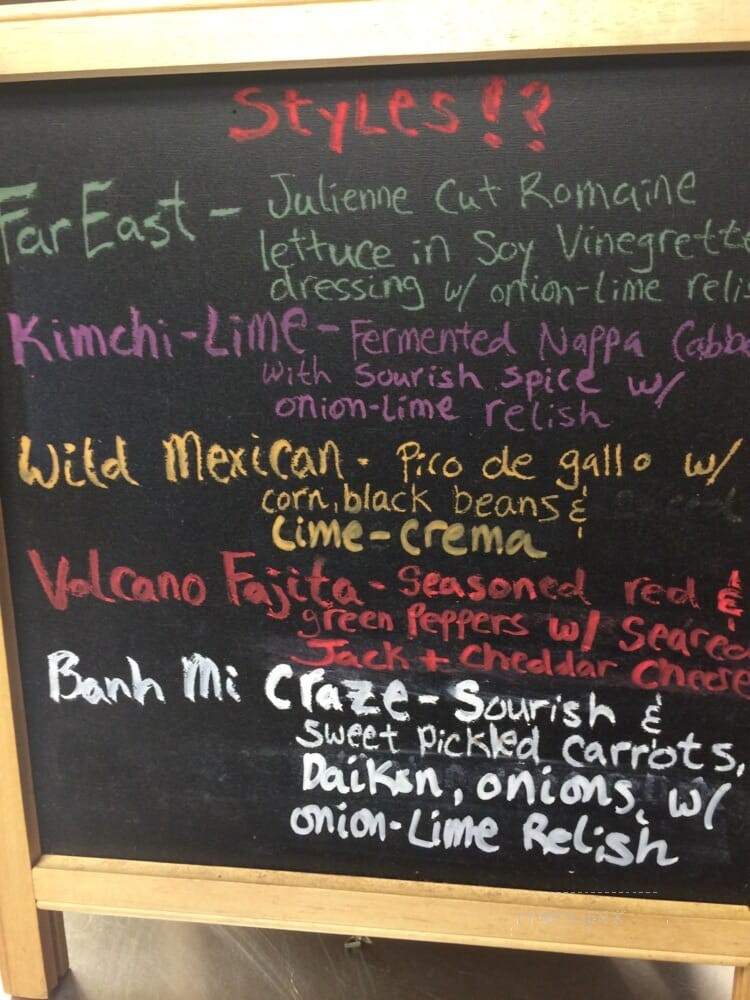 Styles!?
Far East - Julienne Cut Romaine
lettuce in Soy Vinegrette
dressing w/ onion-lime relis
Kimchi-Lime - Fermented Nappa Cabba
with sourish spice w/
onion-lime relish
Wild Mexican - Pico de gallo w/
corn, black beans &
Lime-crema
Volcano Fajita - Seasoned red &
green Peppers w/ Seared
Jack + Cheddar Cheese
Banh Mi Craze - Sourish &
sweet pickled carrots,
Daikon, onions, w/
onion-Lime Relish